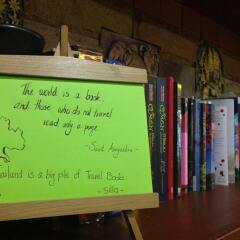 The world is a book,
and those who do not travel
read only a page.
- Saint Augustine -
Thailand is a big pile of Travel Books.
- Silla -